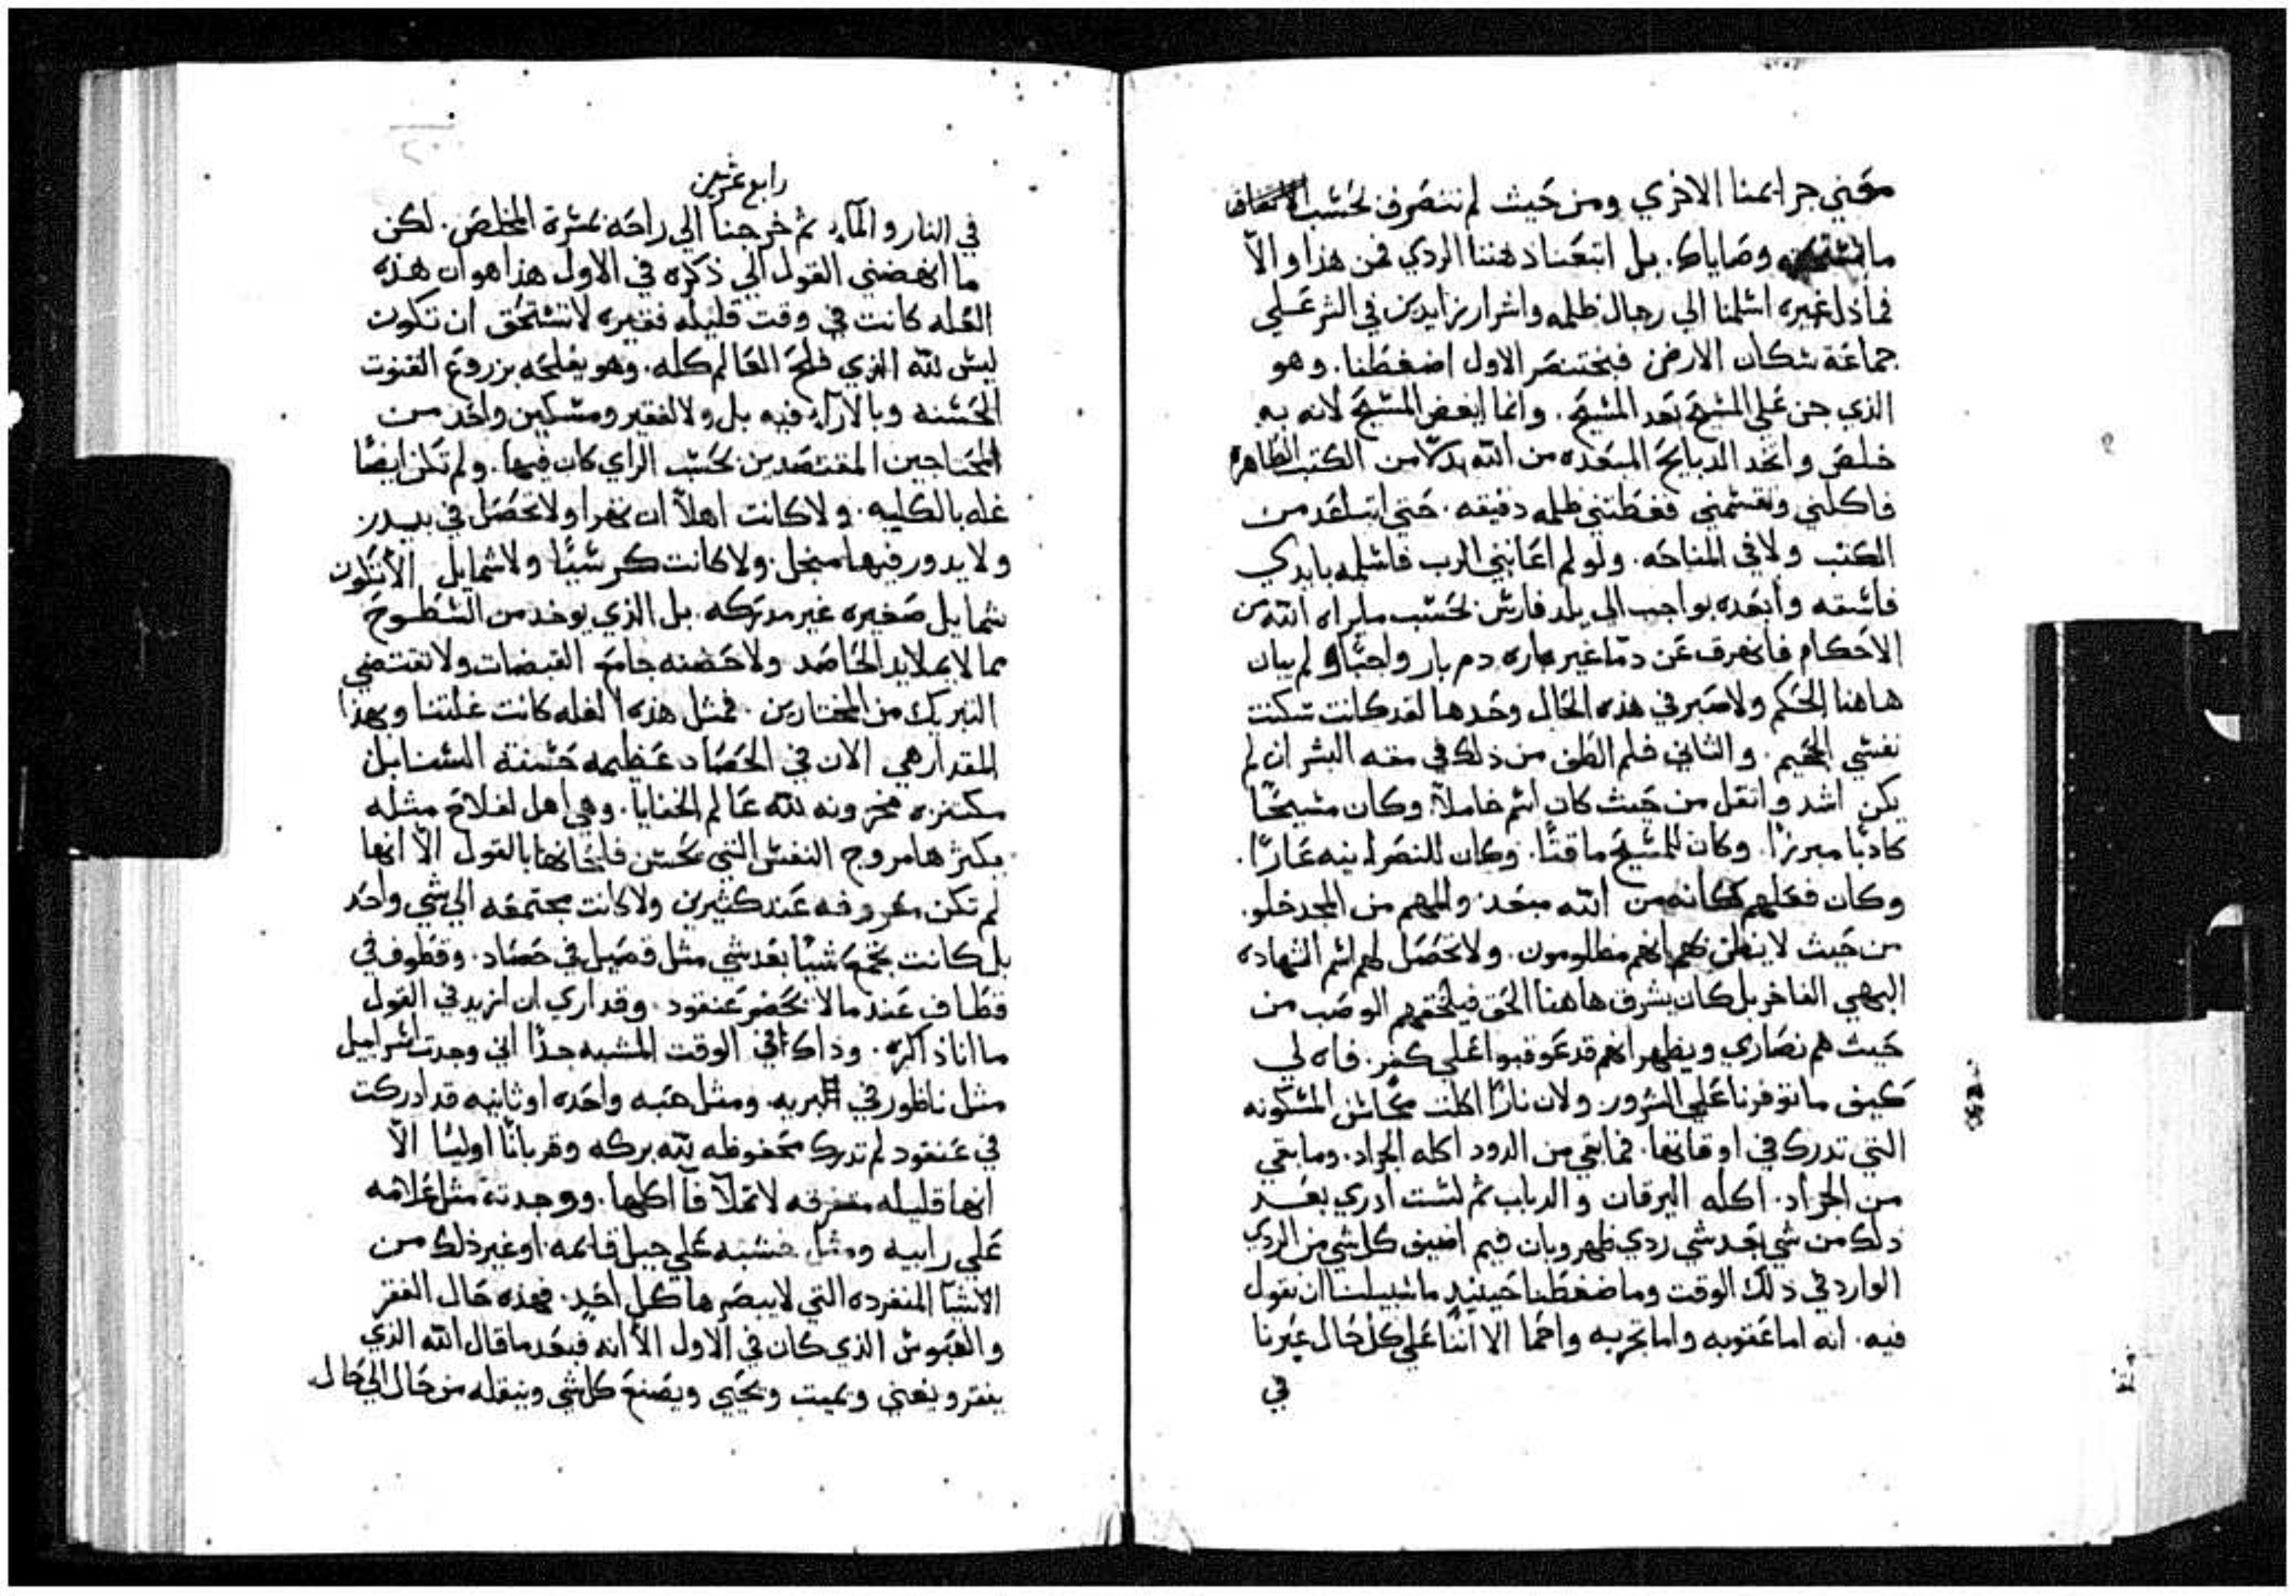 معني جرايمنا الاخري ومن حيث لم نتصرف بحسب
وصاياك. بل اتبعنا دهننا الردي فمن هذا والا
فماذا غيره اسلمنا الي رجال ظلمه واشرار زايدين في الشر علي
جماعة سكان الارض فبختنصر الاول اضغطنا. وهو
الذي جن علي المسيح بعد المسيح. وانما ابغض المسيح لانه به
خلص واتخد الدبايح المبعده من الله بدلا من الكتب الطاهره
فاكلني وقسمني فغطتني ظلمه دقيقه. حتي ابتاعد من
الكتب ولا في المناحه. ولو لم اعانني الرب فاسلمه بايدي
فاسقه وابعده بواجب الي بلد فارس بحسب مايراه الله من
الاحكام فانهرق عن دما غير باره دم بار واجبا ولم يبان
هاهنا الحكم ولا صبر في هذه الحال وحدها لقد كانت سكنت
نفسي الجحيم. والثاني فلم الطف من ذلك في محبه البشر ان لم
يكن اشد واثقل من حيث كان اسم خاملا. وكان مسيحيا
كادبا مبرزا. وكان للمسيح ماقتا. وكان للنصرانيه عارا.
وكان فعلهم كانه من الله مبعد والمهم من المجد خلو.
من حيث لا يظن بهم انهم مظلومون. ولا تحصل لهم اسم الشهاده
البهي الفاخر بل كان يشرق هاهنا الحق فيلحقهم الوصب من
حيث هم نصاري ويظهر انهم قد عوقبوا علي كفر. فاه لي
كيف ماتوفرنا علي الشرور ولان نارا اكلت محاسن المسكونه
التي تدرك في اوقاتها. فما بقي من الدود اكله الجراد. وما بقي
من الجراد. اكله اليرقان والدباب ثم لست ادري بعد
ذلك من شي بعد شي ردي ظهر وبان فيم اضيف كل شي من الردي
الوارد في ذلك الوقت وما ضغطنا حينيد ما سبيلنا ان نقول
فيه. انه اما عقوبه واما تجربه وانما الا اننا علي كل حال عبرنا
في
رابع عشرين
في النار والماء ثم خرجنا الي راحه بمسرة المخلص. لكن
ما انهضني القول الي ذكره في الاول هذا هو ان هذه
الغله كانت في وقت قليله فقيره لا تستحق ان تكون
ليس لله الذي فلح العالم كله. وهو يفلحه بزروع القنوت
الحسنه وبالاراء فيه بل ولا لفقير ومسكين واحد من
المحتاجين المقتصدين بحسب الراي كان فيها. ولم تكن ايضا
غله بالكليه. ولا كانت اهلا ان تفرا ولا تحصل في بيدر
ولا يدور فيها منجل. ولا كانت كرشيا ولا شمايل الا تكون
شمايل صغيره غير مدركه. بل الذي يوخد من السطوح
مما لا يملا يد الحاصد ولا حضنه جامع القبضات ولا تقتضي
التبريك من المختارين. فمثل هذه الغله كانت غلتنا وبهذا
المقدار هي الان في الحصاد عظيمه حسنة السنابل
مكتنزه مخزونه لله عالم الخفايا. وهي اهل لفلاح مثله
يكثرها مروج النفس التي يحسن فلحانها بالقول الا انها
لم تكن معروفه عند كثيرين ولا كانت مجتمعه الي شي واحد
بل كانت تجمع شيا بعد شي مثل قصيل في حصاد. وقطوف في
قطاف عند ما لا يحضر عنقود. وقد اري ان ازيد في القول
ما انا ذاكره. وذاك في الوقت المشبه جدا اني وجدت اسراييل
مثل ناطور في البريه. ومثل حبه واحده او ثانيه قد ادركت
في عنقود لم تدرك محفوظه لله بركه وقربانا اوليا الا
انها قليله متفرقه لا تملا فا اكلها. ووجدته مثل علامه
علي رابيه ومثل خشبه علي جبل قايمه. او غير ذلك من
الاشيا المنفرده التي لا يبصرها كل احد. فهذه حال الفقر
والعبوس الذي كان في الاول الا انه فبعد ما قال الله الذي
يفقر ويغني ويميت ويحيي ويصنع كل شي وينقله من حال الي حال